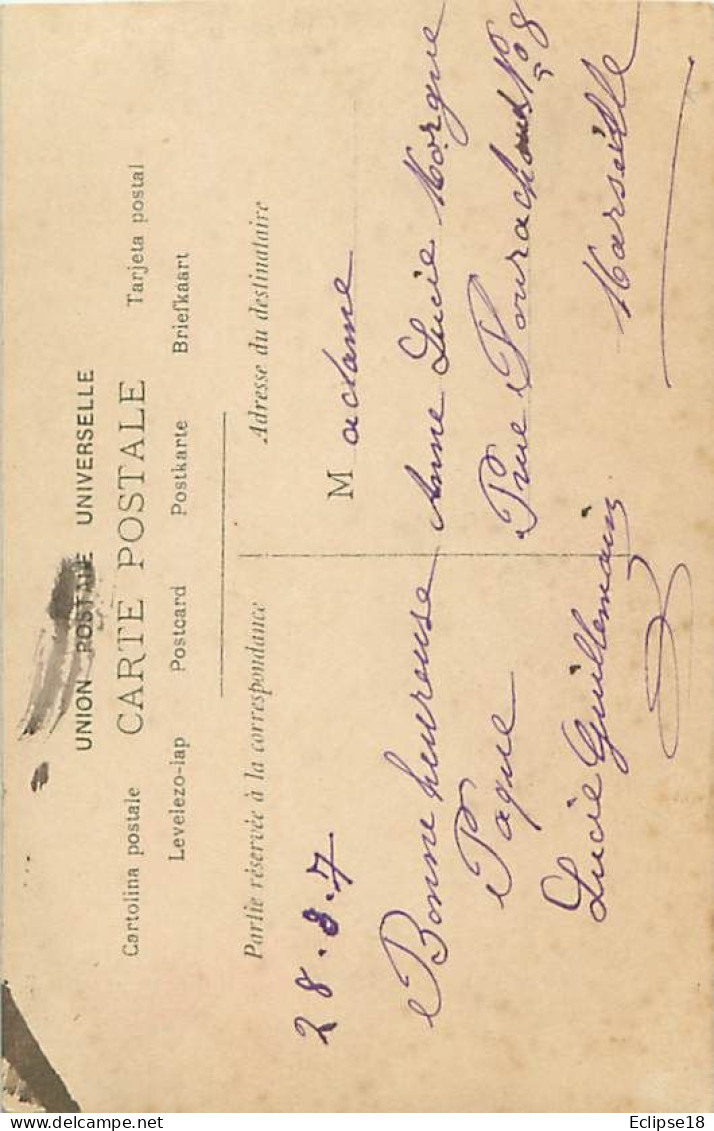 UNION POSTALE UNIVERSELLE
Cartolina postale CARTE POSTALE Tarjeta postal
Levelezo-lap Postcard Postkarte Briefkaart
Partie réservée à la correspondance
Adresse du destinataire
28.3.7
Bonne heureuse
Paque
Lucie Guillemain
Madame
Anne Lucie Morgue
Rue Pourachoux No 8
Marseille
Eclipse18